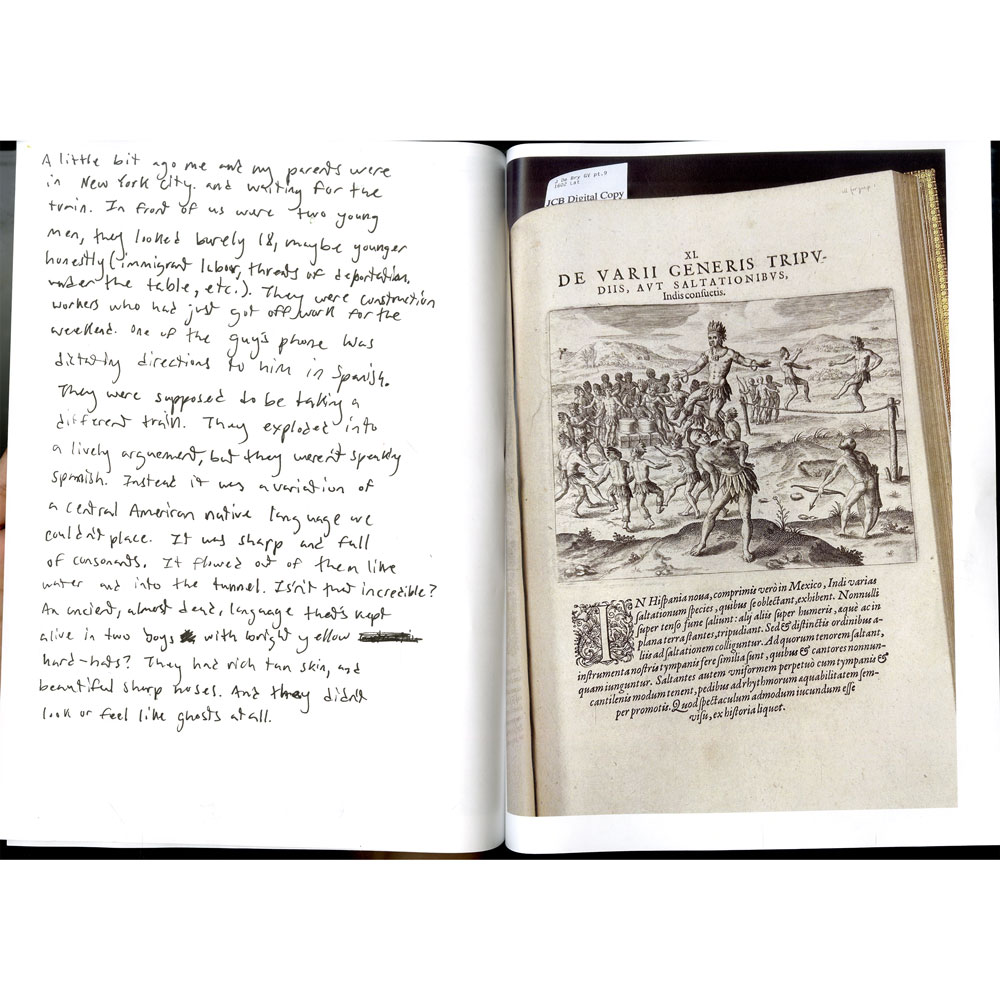 A little bit ago me and my parents were
in New York City. and waiting for the
train. In front of us were two young
men, they looked barely 18, maybe younger
honestly (immigrant labour, threats of deportation,
under the table, etc.). They were construction
workers who had just got off work for the
weekend. One of the guy's phone was
dictating directions to him in Spanish.
They were supposed to be taking a
different train. They exploded into
a lively arguement, but they weren't speaking
spanish. Instead it was a variation of
a central American native language we
couldn't place. It was sharp and full
of consonants. It flowed out of them like
water and into the tunnel. Isn't that incredible?
An ancient, almost dead, language that's kept
alive in two boys with bright yellow
hard-hats? They had rich tan skin, and
beautiful sharp noses. And they didn't
look or feel like ghosts at all.
J De Bry GV pt.9
1602 Lat
JCB Digital Copy
XI.
DE VARII GENERIS TRIPV-
DIIS, AVT SALTATIONIBVS,
Indis consuetis.
IN Hispania noua, comprimis verò in Mexico, Indi varias
saltationum species, quibus se oblectant, exhibent. Nonnulli
super tenso fune saliunt: alij aliis super humeris, aquè ac in
plana terra stantes, tripudiant. Sed & distinctis ordinibus a-
liis ad saltationem colliguntur. Ad quorum tenorem saltant,
instrumenta nostris tympanis fere similia sunt, quibus & cantores nonnun-
quam iunguntur. Saltantes autem vniformem perpetuò cum tympanis &
cantilenis modum tenent, pedibus ad rhythmorum aquabilitatem sem-
per promotis. Quod spectaculum admodum iucundum esse
visu, ex historia liquet.